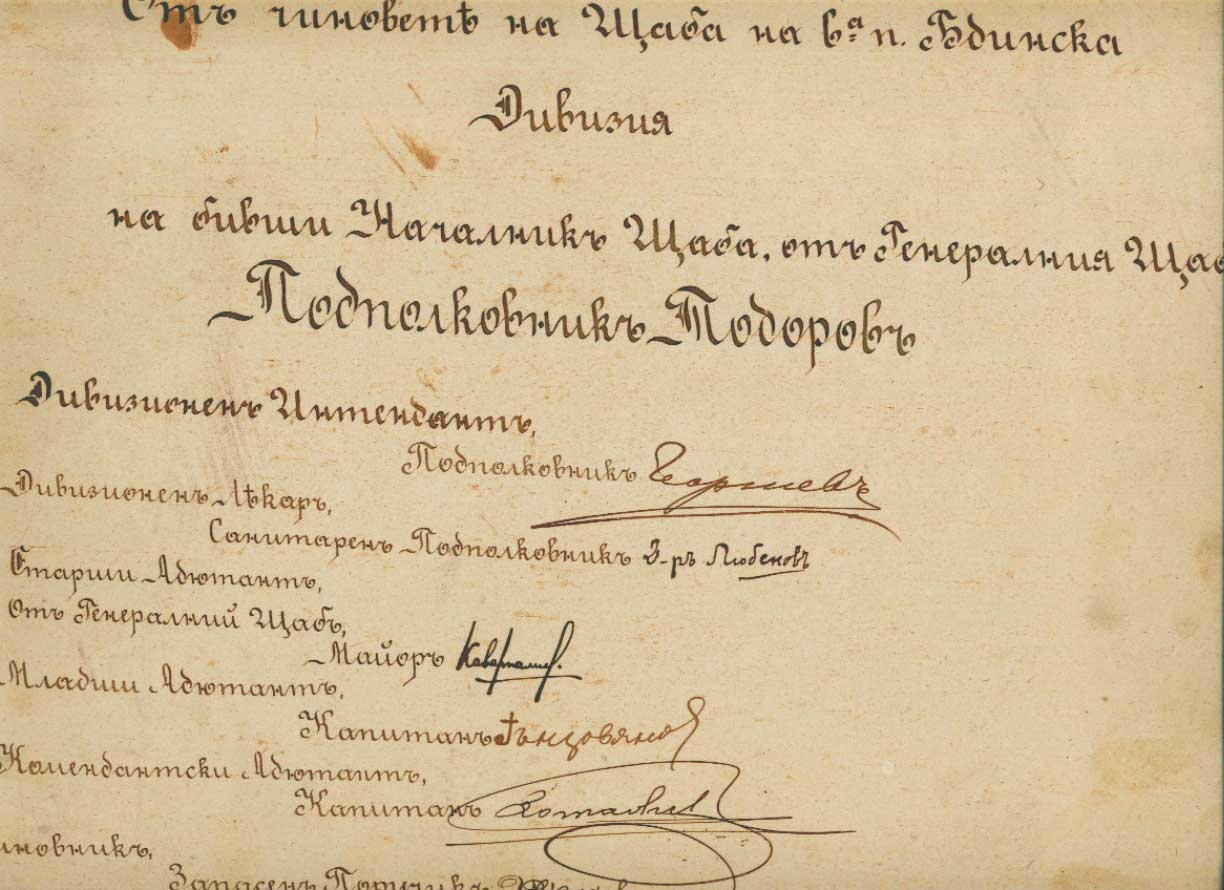 Отъ чиноветѣ на Щаба на 6ᵃ п. Бдинска
Дивизия
на бивши Началникъ Щаба, отъ Генералния Щаб
Подполковникъ Тодоровъ
Дивизионенъ Интендантъ,
Подполковникъ Георгиевъ
Дивизионенъ Лѣкаръ,
Санитаренъ Подполковникъ Д-ръ Любеновъ
Старши Адютантъ,
Отъ Генералний Щабъ,
Майоръ
Младши Адютантъ,
Капитанъ
Комендантски Адютантъ,
Капитанъ
иновникъ,
Запасенъ Поручикъ